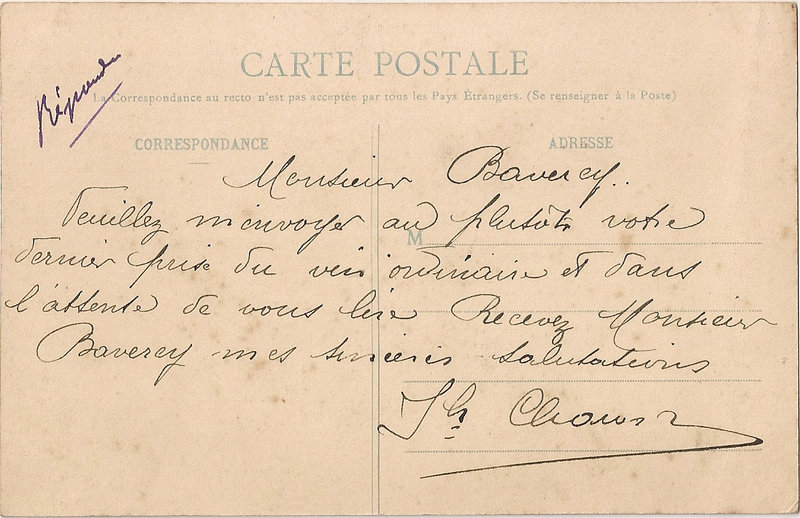 CARTE POSTALE
Répondu
La Correspondance au recto n'est pas acceptée par tous les Pays Étrangers. (Se renseigner à la Poste)
CORRESPONDANCE
ADRESSE
Monsieur Baverey..
Veuillez m'envoyer au plutôt votre
M
dernier prise du vin ordinaire et dans
l'attente de vous lire Recevez Monsieur
Baverey mes sincères salutations
Jh